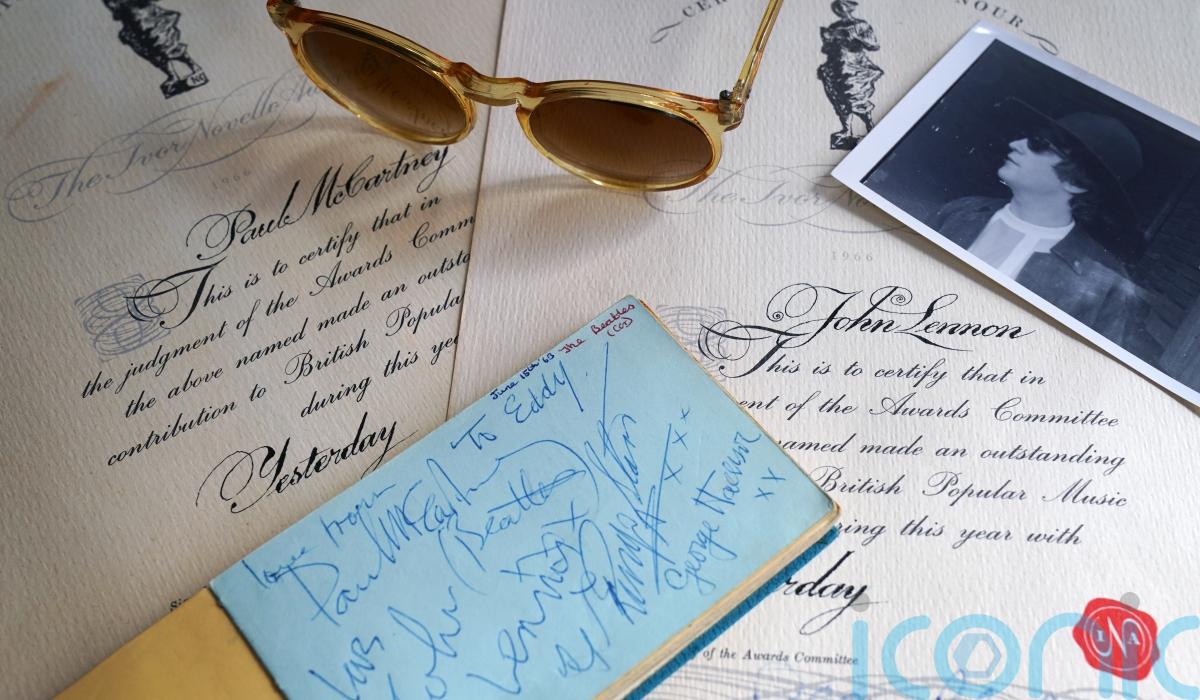 The Ivor Novello
1966
Paul McCartney
This is to certify that in
the judgment of the Awards Comm
the above named made an outsta
contribution to British Popula
during this yea
Yesterday
OUR
The Ivor No
1966
John Lennon
This is to certify that in
ent of the Awards Committee
named made an outstanding
British Popular Music
ring this year with
rday
of the Awards Committee
June 15th '63 The Beatles
To Eddy
love from
Paul McCartney
(Beatles)
love
John
Lennon x
Ringo Starr
xxx
George Harrison
xx
iconic
INA